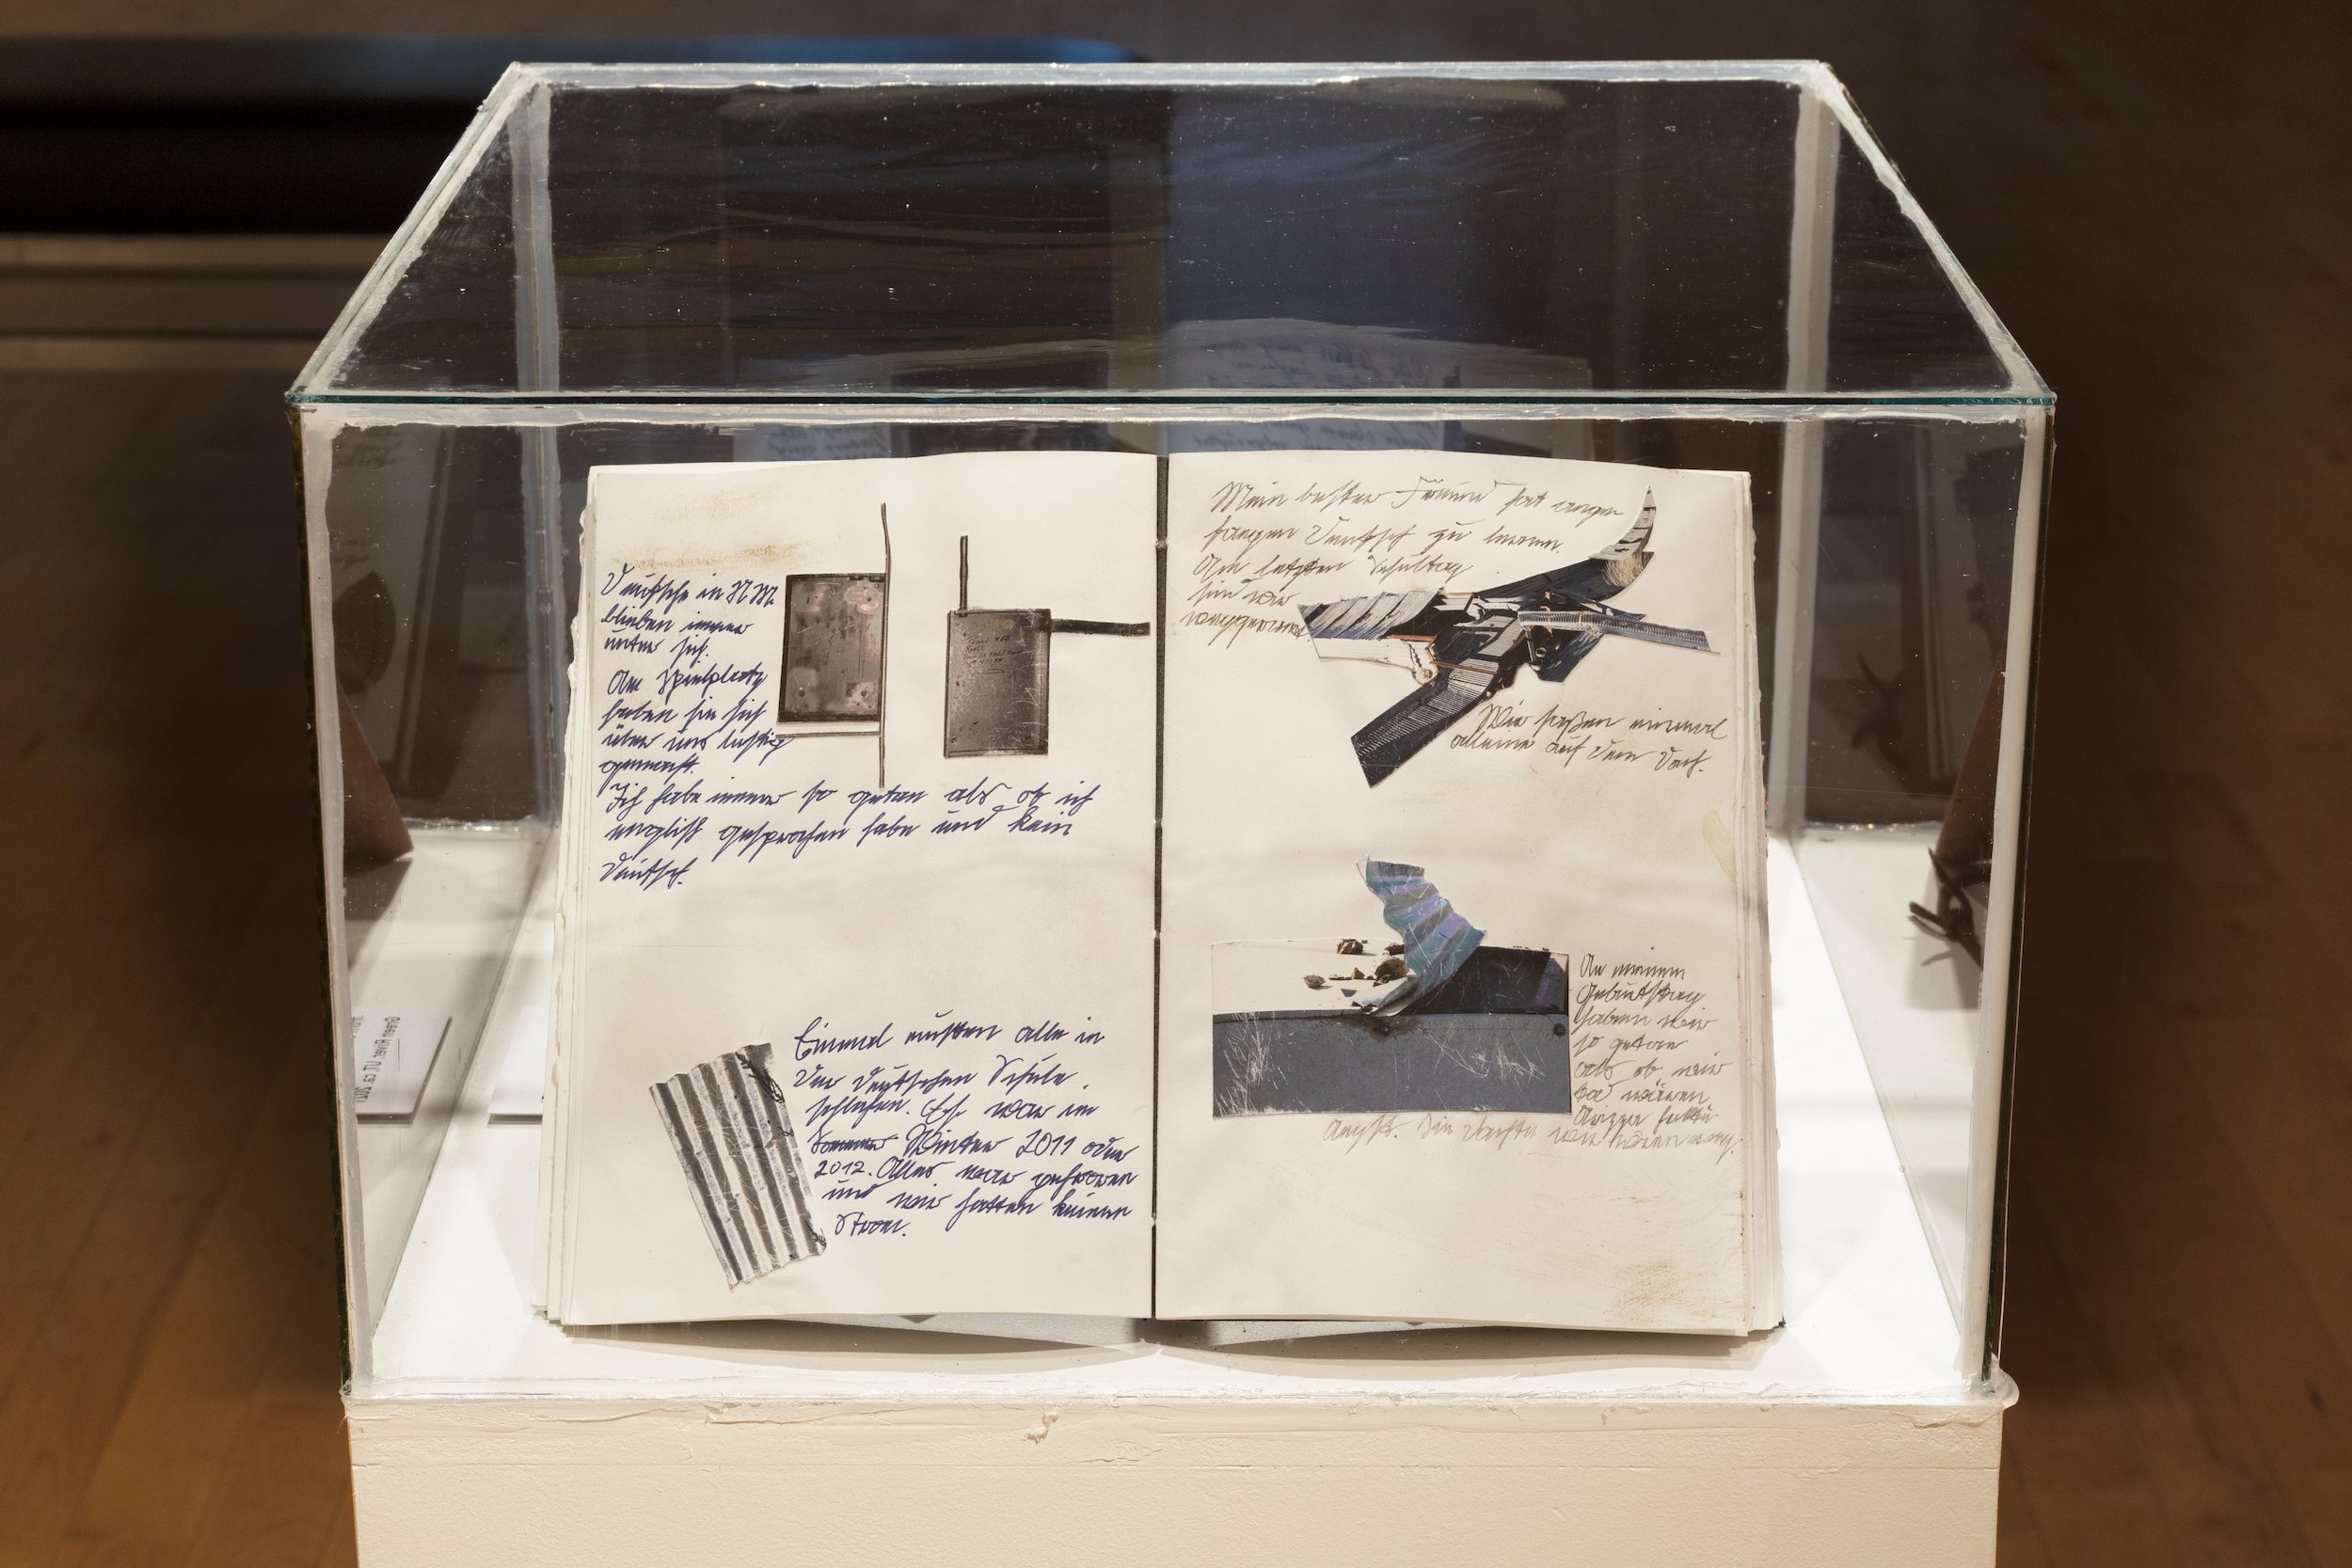 Deutsche in NM
blieben immer
unter sich.
Am Spielplatz
haben sie sich
über uns lustig
gemacht.
Ich habe immer so getan als ob ich
englisch gesprochen habe und kein
Deutsch.
Einmal mußten alle in
der deutschen Schule
schlafen. Es war im
Sommer Winter 2011 oder
2012. Alles war gefroren
und wir hatten keinen
Strom.
Mein bester Freund hat ange
fangen Deutsch zu lernen.
Am letzten Schultag
sind wir
Wir saßen einmal
alleine auf dem Dach.
An meinem
Geburtstag
haben wir
so getan
als ob wir
tod wären
hatte
Angst. Sie dachte wir wären weg.
Green River, UT, ca. 2021